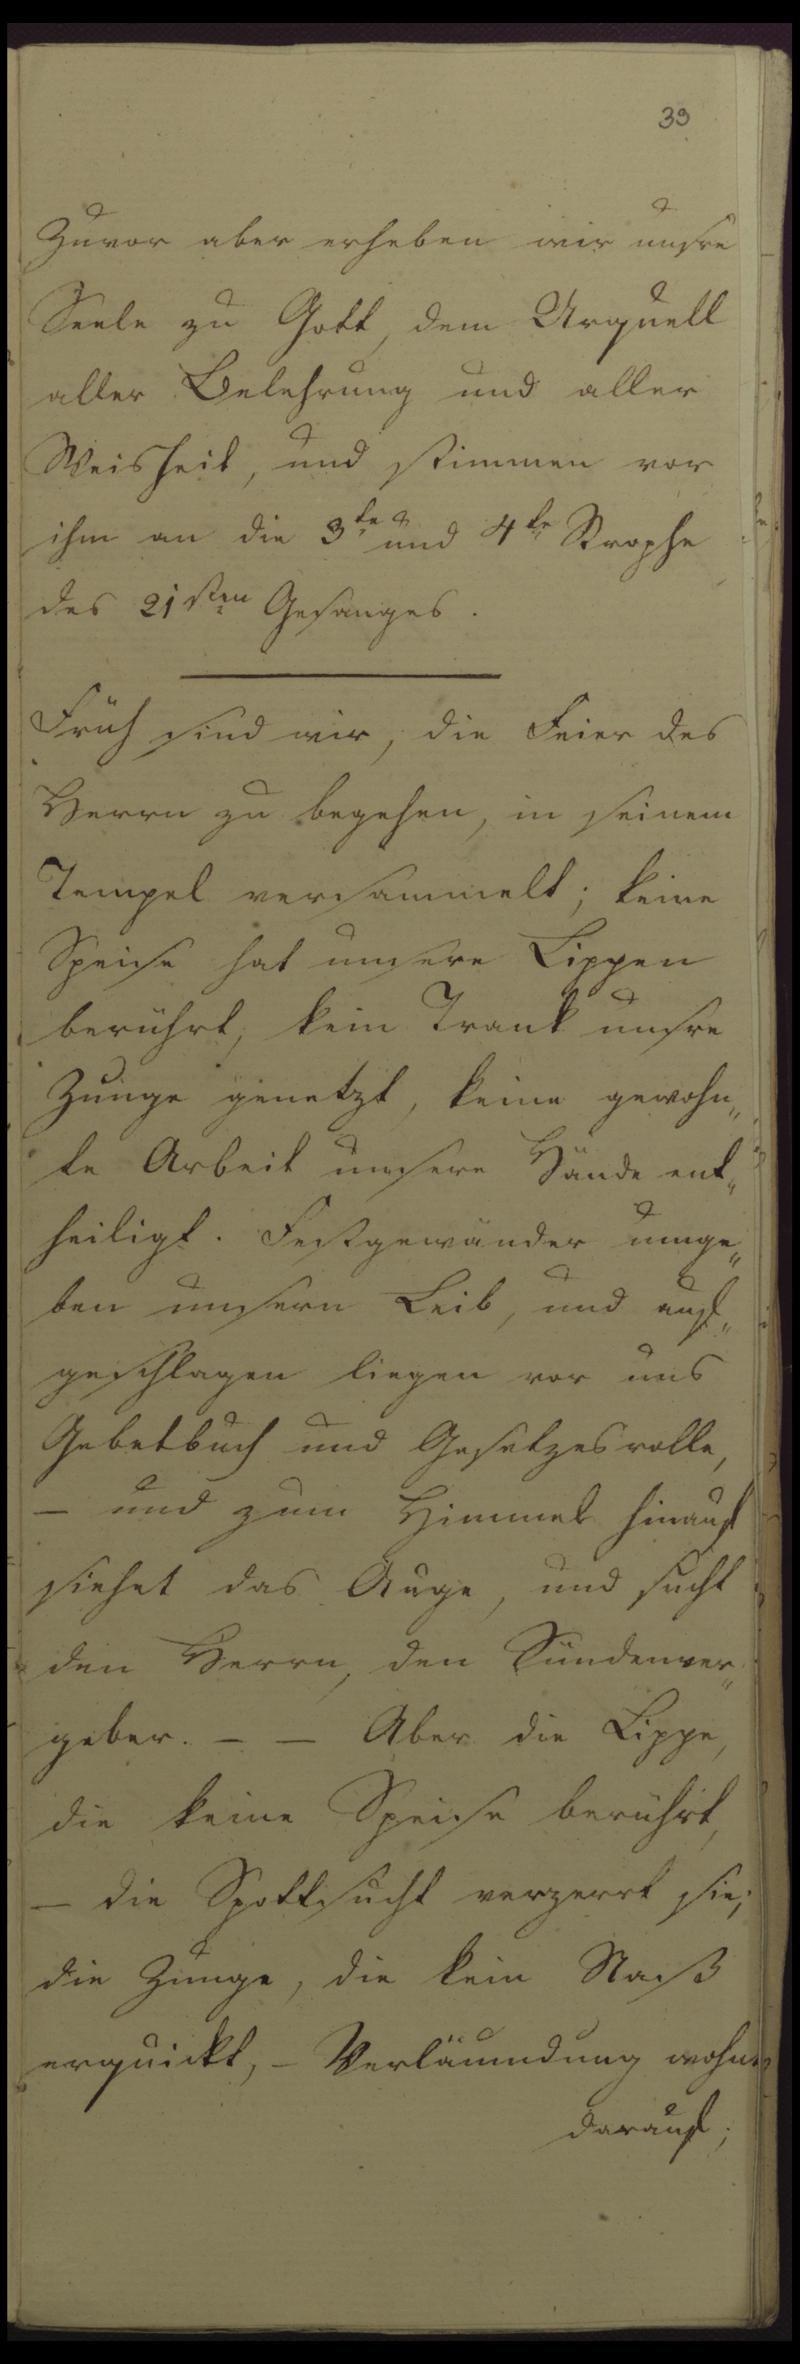 39
Zuvor aber erheben wir unsre
Seele zu Gott, dem Urquell
aller Belehrung und aller
Weisheit, und stimmen vor
ihm an die 3te und 4te Strophe
des 21sten Gesanges.
Früh sind wir, die Feier des
Herrn zu begehen, in seinem
Tempel versammelt; keine
Speise hat unsere Lippen
berührt, kein Trank unsre
Zunge genetzt, keine gewohn„
te Arbeit unsere Hände ent„
heiligt. Festgewänder umge„
ben unsern Leib, und auf„
geschlagen liegen vor uns
Gebetbuch und Gesetzesrolle,
– und zum Himmel hinauf
siehet das Auge, und sucht
den Herrn, den Sündenver„
geber. – – Aber die Lippe,
die keine Speise berührt,
– die Spottsucht verzerrt sie;
die Zunge, die kein Naß
erquickt, – Verläumdung wohnt
darauf;